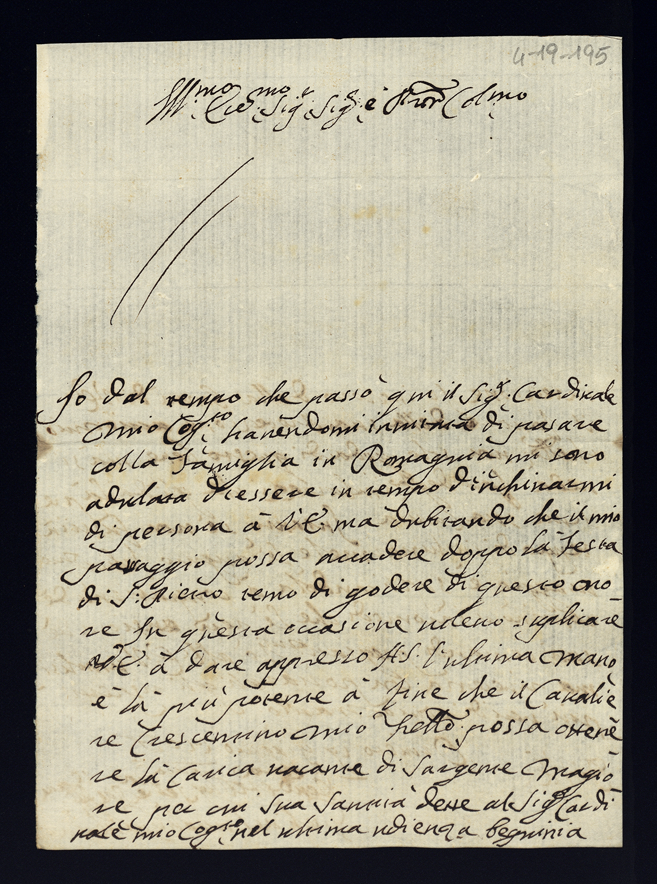 4-19-195
Ill:mo Ecc:mo Sig:r Sig:r e Pron Col:mo
Io dal tempo che passò qui il Sig:r Cardinale
mio Cog:to havendomi di pasare
colla Famiglia in Romagnia mi sono
adulata d'essere in tempo d'inchinarmi
di persona à V E ma dubitando che il mio
passaggio possa accadere doppo la Festa
di S: Pietro temo di godere di questo ono
re In questa occasione udeno suplicare
V E à dare appresso l'ultima mano
è la più potente à fine che il Cavalie
re Crescentino mio possa ottene
re la Carica vacante di Sargente Magio
re per cui Sua Santità dette al Sig:r Cardi
nale mio Cog:to nel ultima udienza begninia